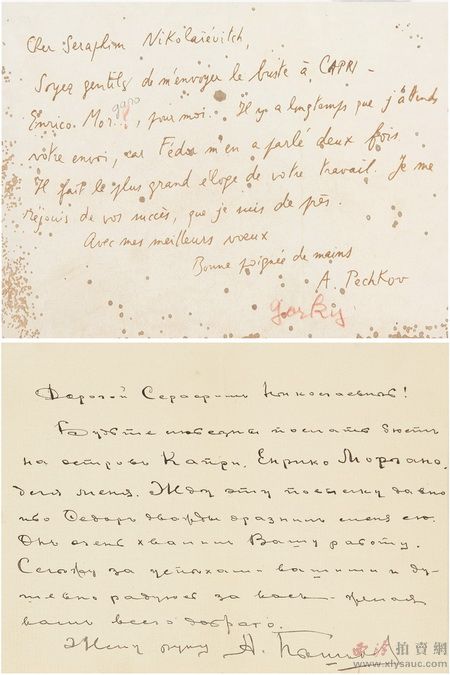 Cher Seraphim Nikolaïévitch,
Soyez gentils de m'envoyer le buste à CAPRI -
Enrico Mor gano ?, pour moi. Il y a longtemps que j'attends
votre envoi, car Fédor m'en a parlé deux fois
Il fait le plus grand éloge de votre travail. Je me
réjouis de vos succès, que je suis de près.
Avec mes meilleurs voeux
Bonne poignée de mains
A. Pechkov
gorky
Дорогой Серафимъ Николаевичъ!
Будьте любезны послать бюстъ
на островъ Капри, Енрико Моргано,
для меня. Жду эту посылку давно
ибо Федоръ дважды дразнилъ меня ею.
Онъ очень хвалилъ Вашу работу.
Слежу за успѣхами вашими и ду-
шевно радуюсь за васъ, желая
вамъ всего добраго.
Жму руку А. Пѣшковъ
西泠拍賣網
www.xlysauc.com